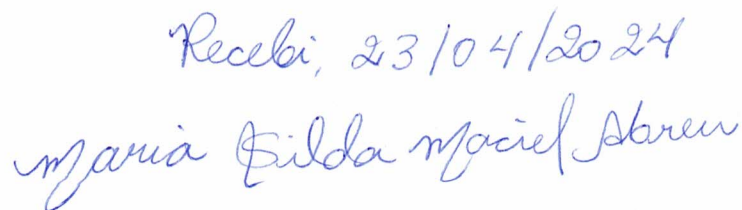 Recebi, 23/04/2024
Maria Gilda Maciel Abreu